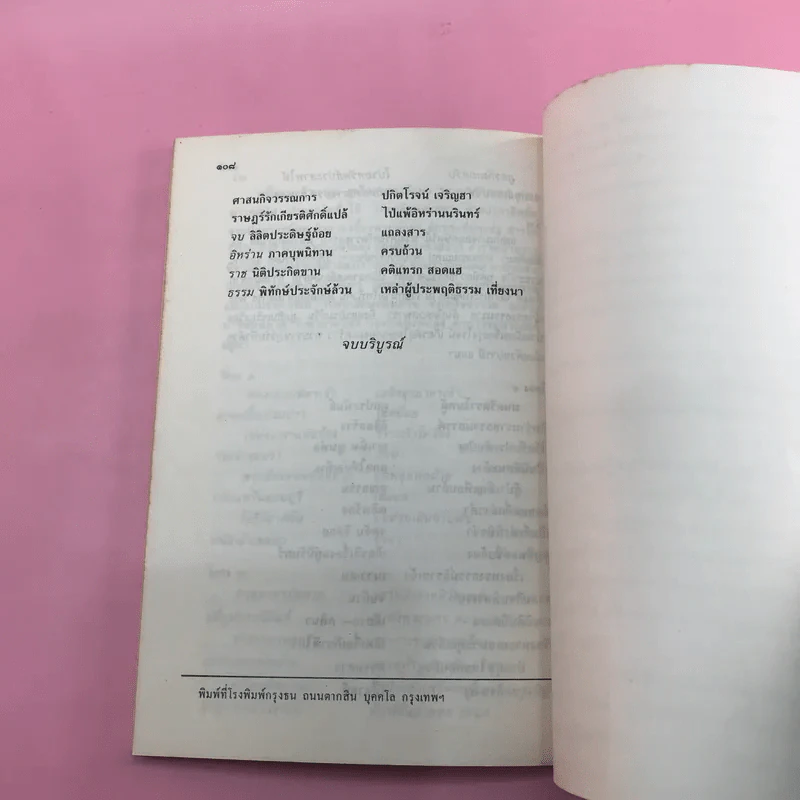 ๑๐๘
ศาสนกิจวรรณการ ปกิตโรจน์ เจริญฮา
ราษฎร์รักเกียรติศักดิ์แปล้ ไป่แพ้อิหร่านนรินทร์
จบ ลิลิตประดิษฐ์ถ้อย แถลงสาร
อิหร่าน ภาคบุพนิทาน ครบถ้วน
ราช นิติประกิตขาน คติแทรก สอดแฮ
ธรรม พิทักษ์ประจักษ์ล้วน เหล่าผู้ประพฤติธรรม เที่ยงนา
จบบริบูรณ์
พิมพ์ที่โรงพิมพ์กรุงธน ถนนตากสิน บุคคโล กรุงเทพฯ